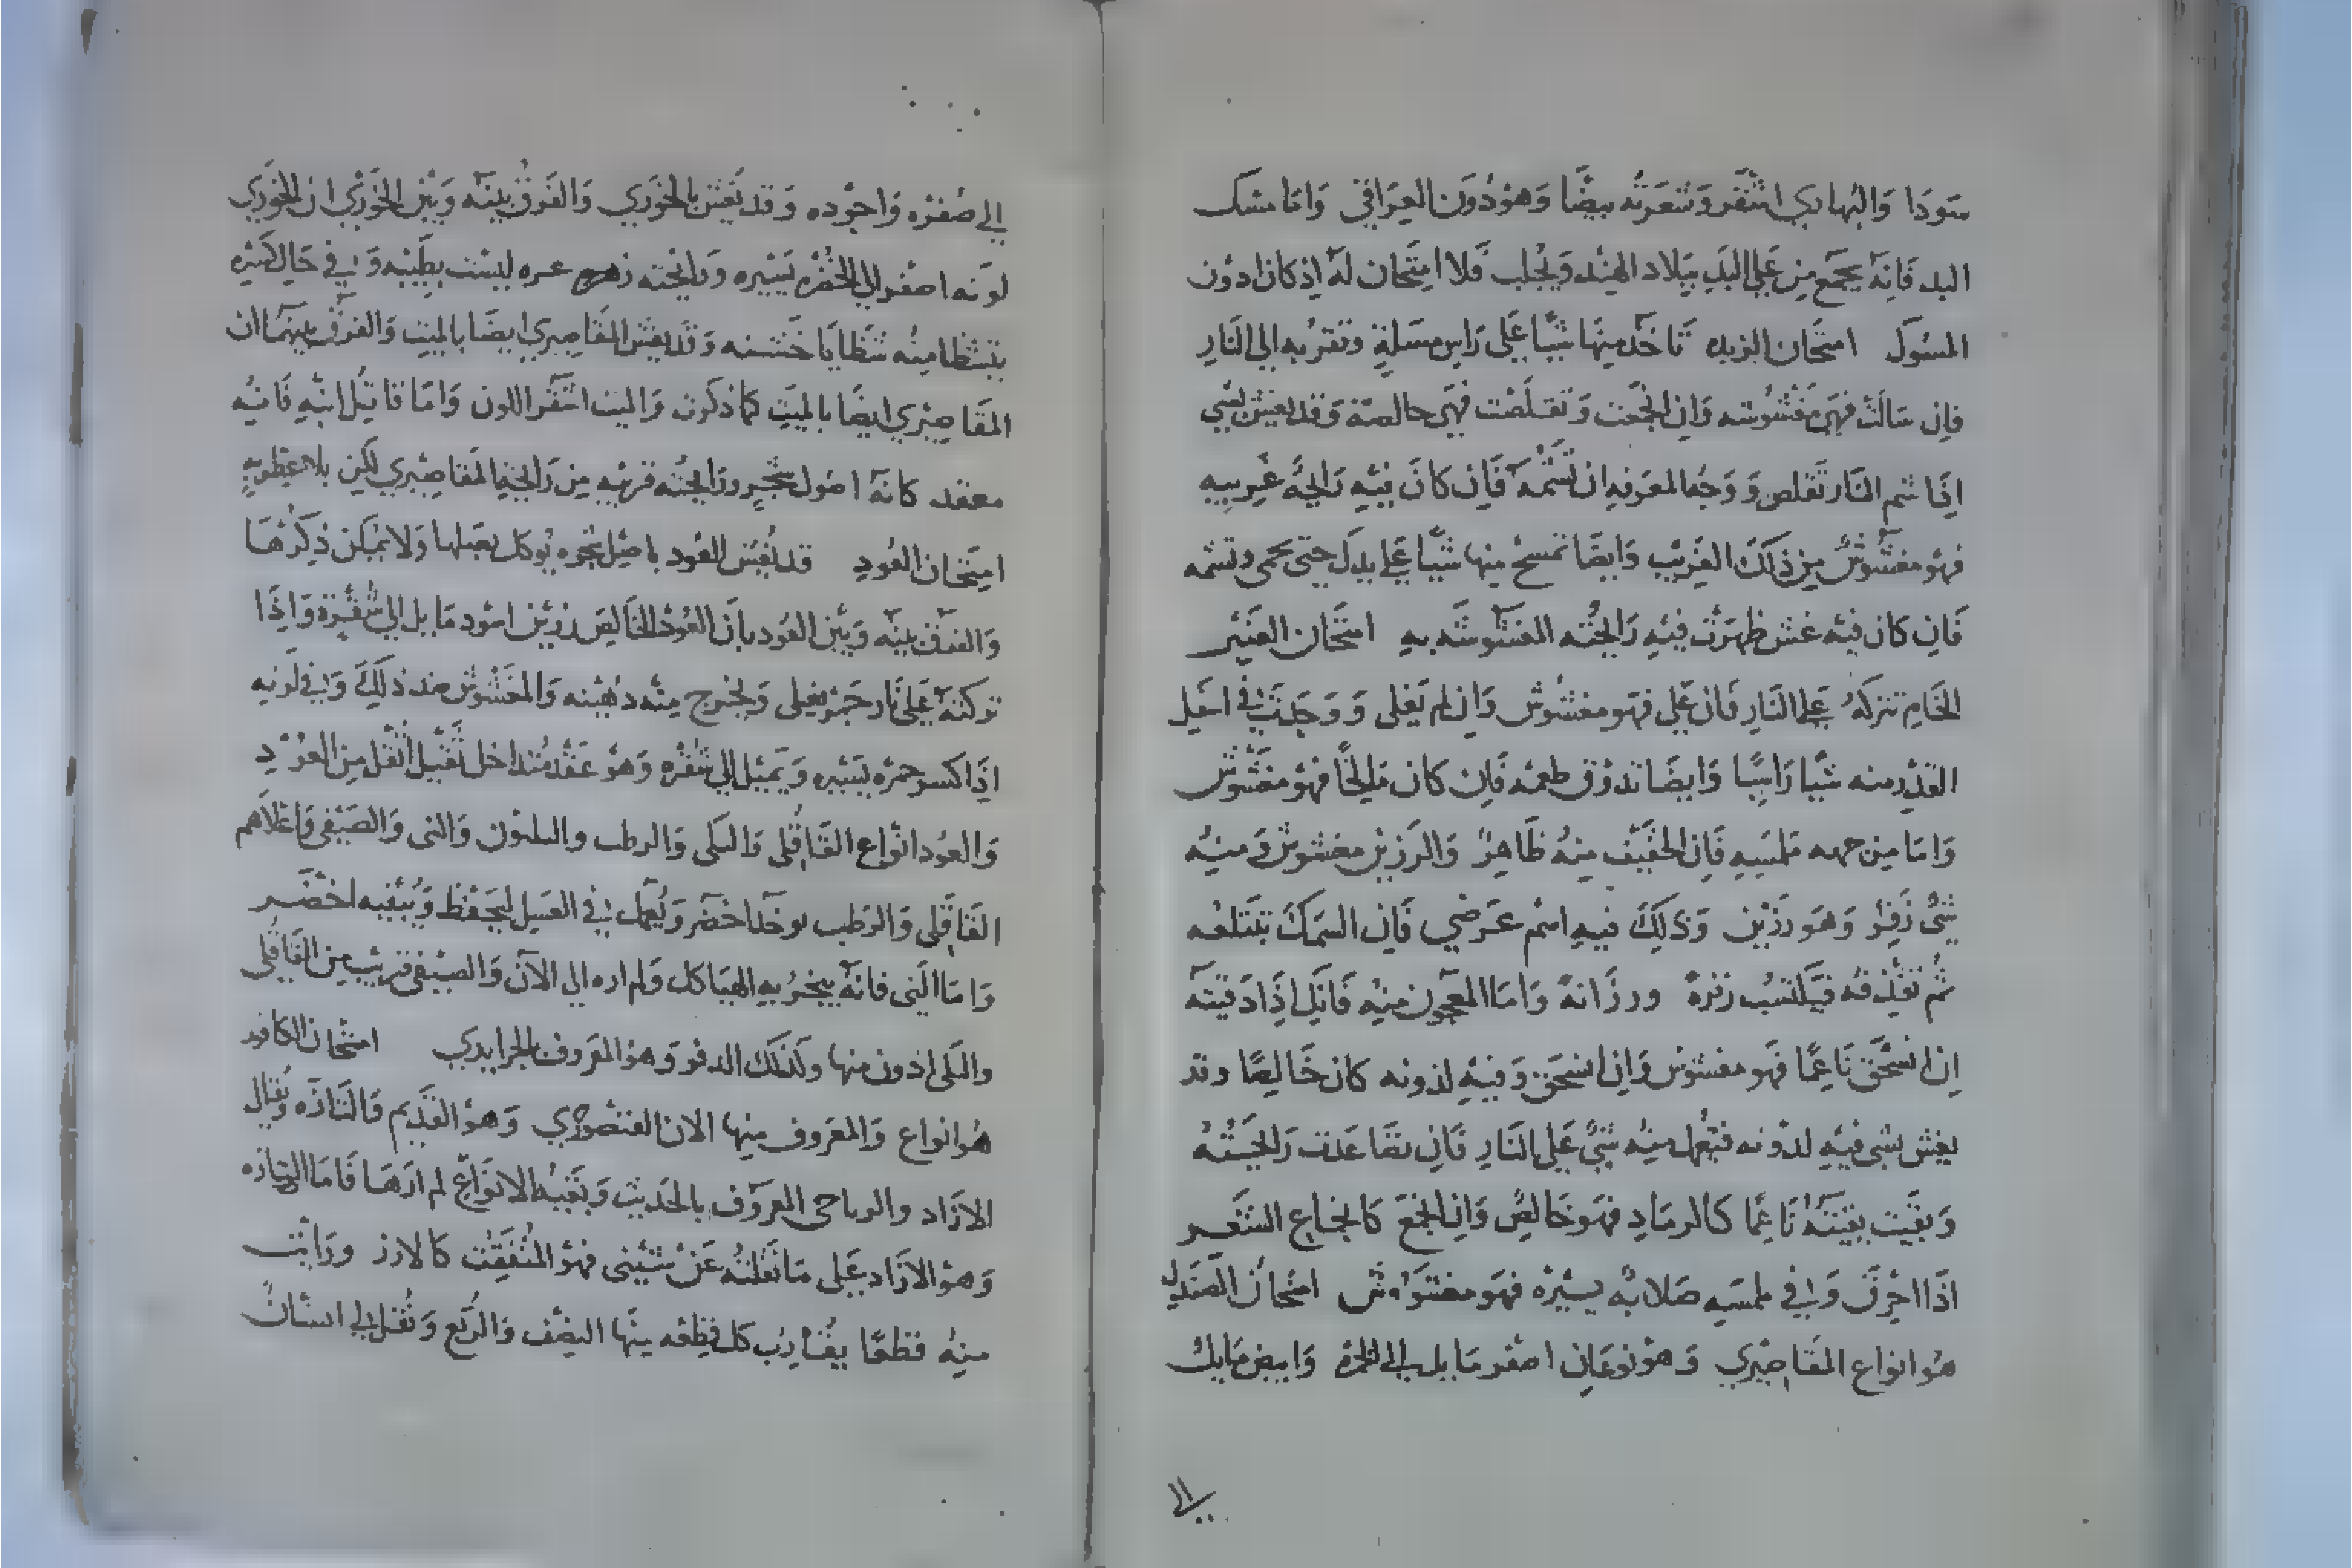 سودا والبهاري اشقر وشعرته بيضا وهو دون العراقي واما مسك
البد فانه يجمع من على البد ببلاد الهند ويجلب فلا امتحان له اذ كان ادون
المسول امتحان الزبده تاخد منها شيا على راس مسلة وتقربه الى النار
فان سالت فهي مغشوشه وان اجتمعت وتقلصت فهي خالصة وقد يغش بشي
اذا شم النار تقلص ووجه المعرفه ان تشمه فان كان فيه رايحة غريبه
فهو مغشوش من ذلك الغريب وايضا تمسح منها شيا على يدك حتى تحمى وتشمه
فان كان فيه غش ظهرت فيه رايحته المغشوشه به امتحان العنبر
الخام تتركه على النار فان غلى فهو مغشوش وان لم يغلى ووجدت في اسفل
القدر منه شيا راسيا وايضا تدوق طعمه فان كان مالحا فهو مغشوش
واما من جهه ملمسه فان الخفيف منه ظاهر والرزين مغشوش ومنه
شي زفر وهو رزين وذلك فيه اسم عرضي فان السمك تبتلعه
ثم تقذفه فيكتسب زفرة ورزانة واما المعجون منه فانك اذا دقيته
ان انسحق ناعما فهو مغشوش وان انسحق وفيه لدونه كان خالصا وقد
يغش بشي فيه لدونه فتعمل منه شي على النار فان تصاعدت رايحته
وبقيت بقيته ناعما كالرماد فهو خالص وان اجتمع كاجتماع الشعر
اذا احرق وفي ملمسه صلابة يسيرة فهو مغشوش امتحان الصندل
هو انواع المقاصيري وهو نوعان اصفر مايل الى الحمرة وابيض مايل
الى
الى صفره واجوده وقد يغش بالخوري والفرق بينه وبين الخوري ان الخوري
لونه اصفر الى الخضره يسيره ورايحته ليست بطيبه وفي حال كسره
يتشظا منه شظايا خشنه وقد يغش المقاصيري ايضا بالميت والفرق بينهما ان
المقاصيري ايضا بالميت كما ذكرت والميت اشقر اللون واما فانه
معقد كانه اصول شجر ورايحته قريبه من رايحة المقاصيري لكن بلا عطريه
امتحان العود قد يغش العود باصل شجره يوكل بصلها ولا يمكن ذكرها
والفرق بينه وبين العود بان العود الخالص رزين اسود مايل الى شقرة واذا
تركته على نار جمر يغلى ويخرج منه دهينه والمغشوش ضد ذلك وفي لونه
اذا كسر حمره يسيره ويميل الى شقره وهو عقد متداخل ثقيل اثقل من العود
والعود انواع القاقلى والرطب والصيفى واعلاهم
القاقلى والرطب يوخد اخضر ويعمل في العسل ليحفظ ويبقيه اخضر
واما فانه يبخر به الهياكل ولم اره الى الان والصيفى قريب من القاقلى
ادون منها وكذلك وهو المعروف بالجرايدي امتحان الكافور
هو انواع والمعروف منها الان الفنصوري وهو القديم ويقال
الازاد والرباحى المعروف بالحديث وبقية الانواع لم ارها فاما
وهو الازاد على ما نقلته عن شيخى فهو المتفتت كالارز ورايت
منه قطعا يقارب كل قطعه منها النصف والربع ونقل الي انسان